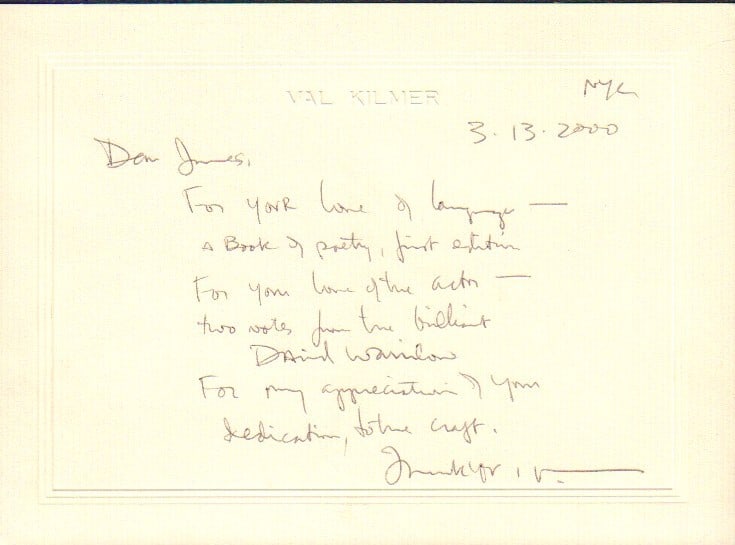 VAL KILMER
NYC
3.13.2000
Dear James,
For your love of language —
a Book of poetry, first edition
For your love of the actor —
two notes from the brilliant
David Warrilow
For my appreciation of your
dedication, to the craft.
Thank you, V.